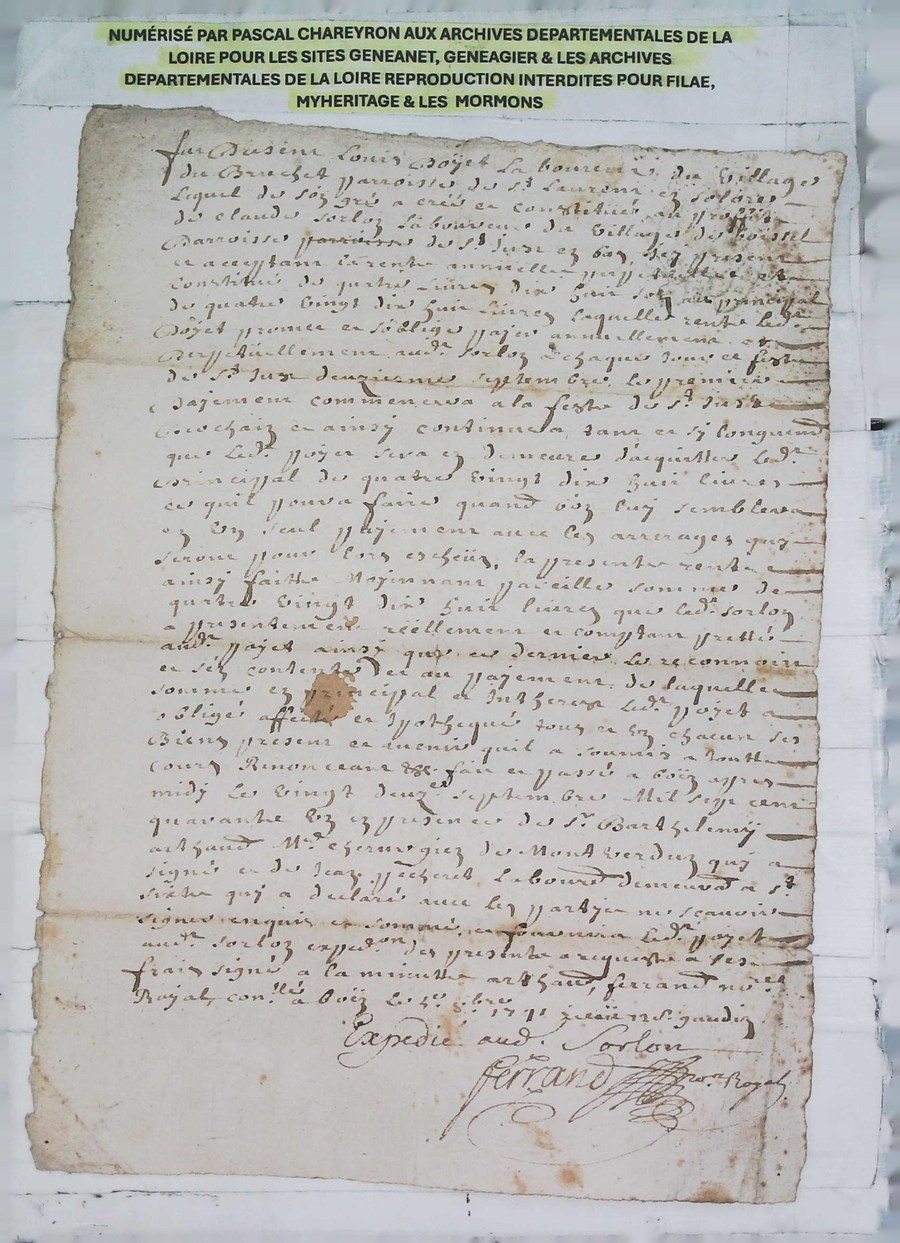 NUMÉRISÉ PAR PASCAL CHAREYRON AUX ARCHIVES DEPARTEMENTALES DE LA
LOIRE POUR LES SITES GENEANET, GENEAGIER & LES ARCHIVES
DEPARTEMENTALES DE LA LOIRE REPRODUCTION INTERDITES POUR FILAE,
MYHERITAGE & LES MORMONS
fut present Louis Poÿet Laboureur du Village
du Bruchet parroisse de St Laurent en solore
Lequel de són gré a créé et constitué au proffit
de claude sorlon Laboureur du Village de boisset
Parroisse parroisse de St Just en bas, icy present
et acceptant La rente annuelle perpetuelle et
constitué de quatre Livres dix huit sols au principal
de quatre vingt dix huit Livres laquelle rente Ledt
Poÿet promet et s'oblige payer annuellement et
Perpetuellement audt sorlon a chaque jour et feste
de St Just deuzieme septembre le premier
Pajement commencera a la feste de St Just
prochain et ainsy continuer tant et sy longuement
que Ledt poyet sera en demeure d'acquitter Ledt
Principal de quatre vingt dix huit livres
ce quil poura faire quand bon luy semblera
en un seul pajement avec les arrerages quy
seront pour lors escheüs, la presente rente
ainsy faitte Moyennant pareille somme de
quatre vingt dix huit livres que Ledt sorlon
a presentement reëllement et comptant pretté
audt poyet ainsy que ce dernier le reconnoit
et s'en contente au pajement de laquelle
somme en principal et Intherest Ledt poyet a
obligé affecté et ipothequé tous et un chacun ses
Biens present et avenir quil a soumis a toutte
cours Renonceant &&. fait et passé a boën appres
midy le vingt deuze septembre Mil sept cent
quarante un en presence de Sr Barthelemÿ
arthaud Md de Montverdun quy a
signé et de Jean pecheret Labourd demeurd a St
sixte quy a declaré avec les partyes ne scavoir
signer enquis et sommé, et fournira Ledt poyet
audt sorlon expedon des presente a requiste a ses
frais signé a la minutte arthaud, ferrand nore
Royal, conlé a boën le 8bre 1741 gaudin
Expedié aud. Sorlon
ferrand nore Royal